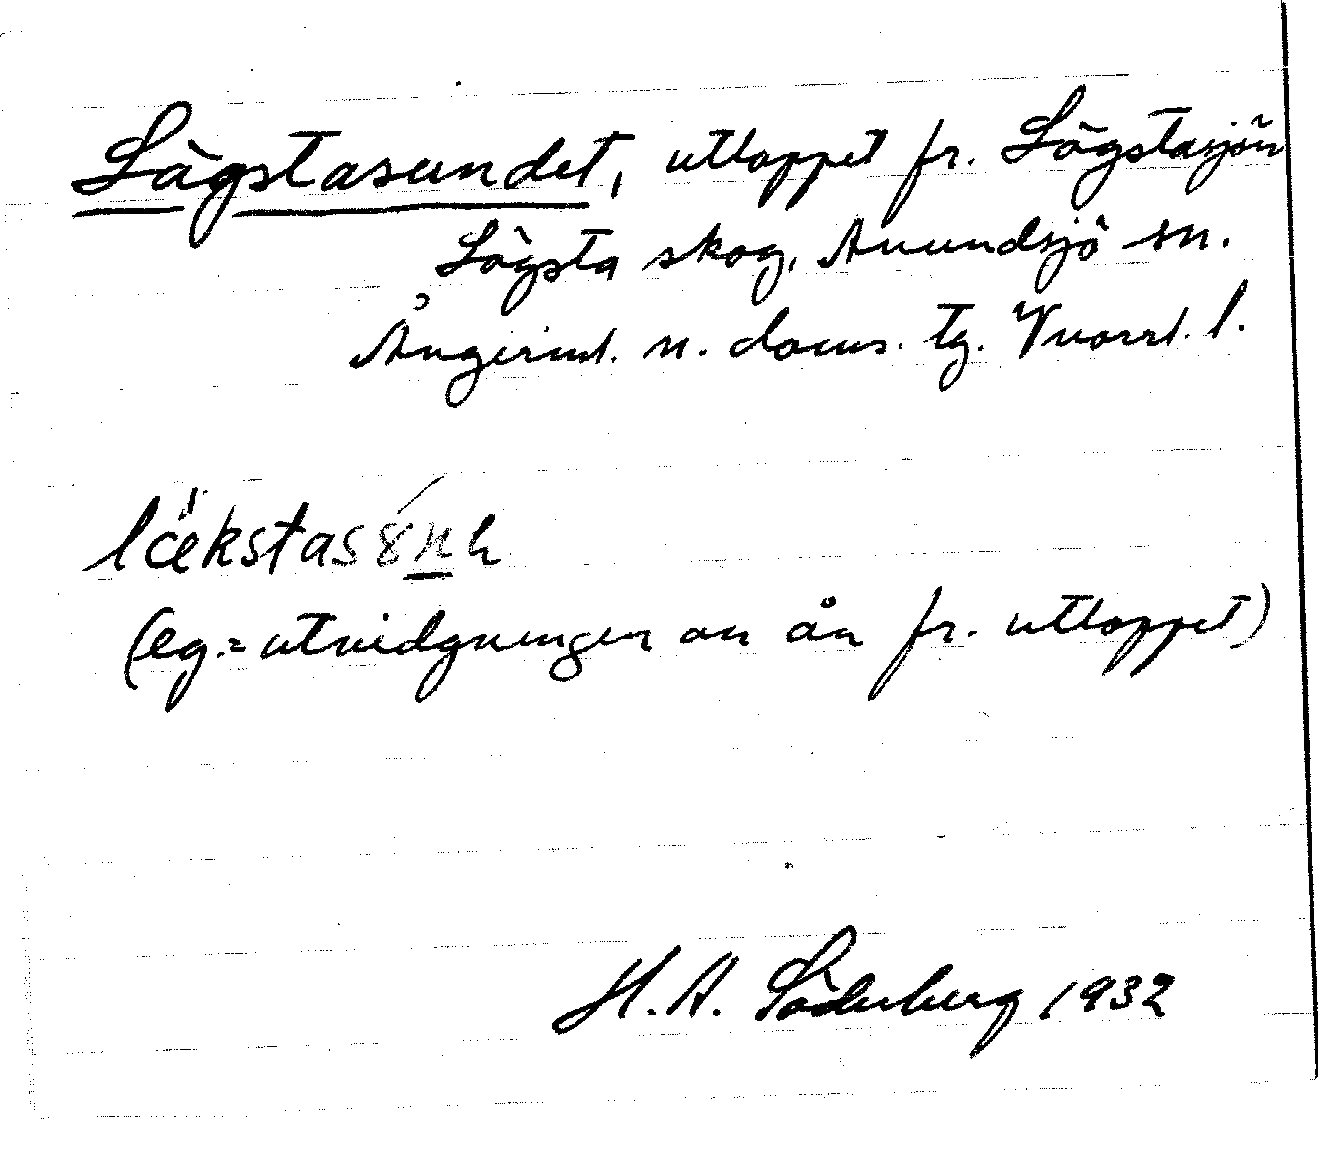 Lägstasundet, utloppet fr. Lägstasjön
Lägsta skog, Anundsjö sn.
Ångerml. n. doms. tg. Vnorrl. l.
(eg.= utvidgningen av ån fr. utloppet)
H. A. Söderberg 1932